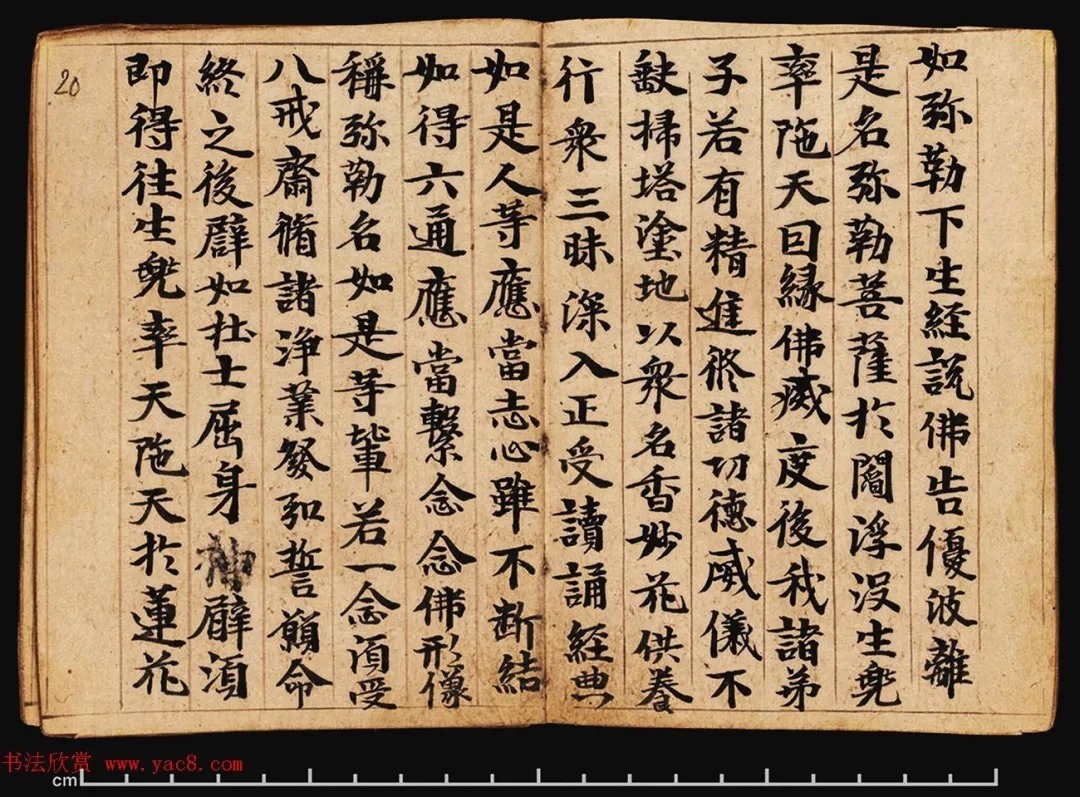 如弥勒下生經說佛告優波離
是名弥勒菩薩於閻浮没生兜
率陁天因緣佛㓕度後我諸弟
子若有精進修諸功德威儀不
缺掃塔塗地以衆名香妙花供養
行衆三昧深入正受讀誦經典
如是人等應當志心雖不断結
如得六通應當繫念念佛形像
稱弥勒名如是等輩若一念須受
八戒齋脩諸淨業發弘誓願命
終之後辟如壮士屈身 臂須
即得往生兜率天陁天於蓮花
20
书法欣赏 www.yac8.com
cm